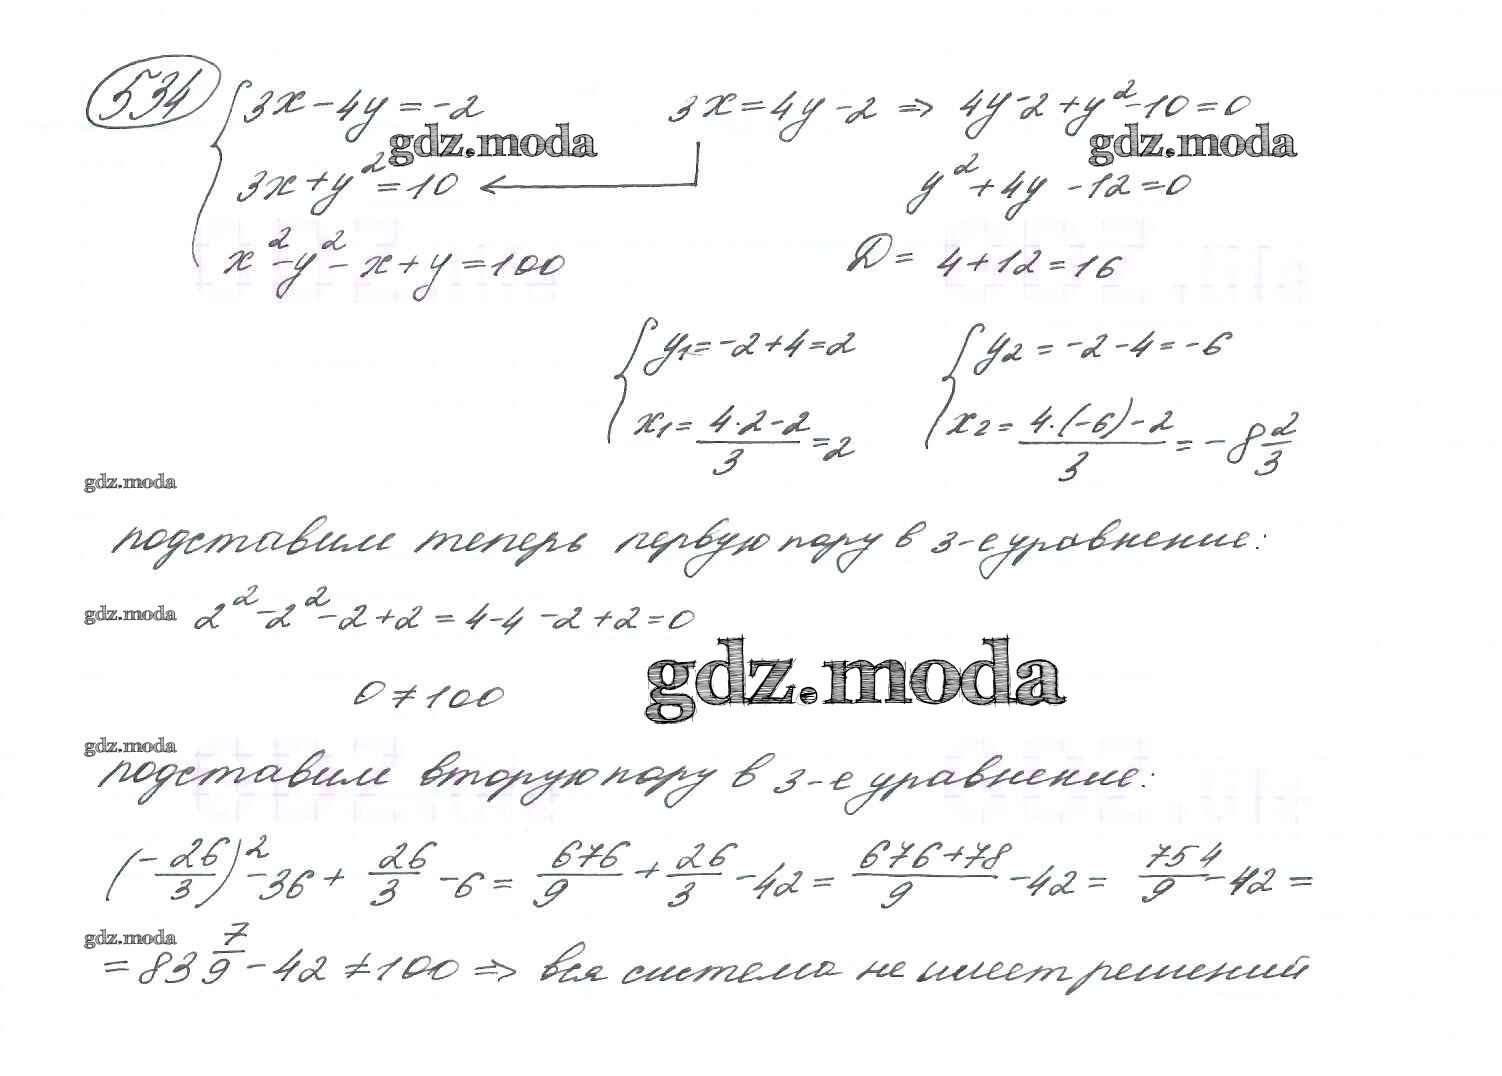 534 3x - 4y = -2 3x = 4y - 2 ⇒ 4y - 2 + y² - 10 = 0
gdz.moda gdz.moda
3x + y² = 10 y² + 4y - 12 = 0
x² - y² - x + y = 100 D = 4 + 12 = 16
y₁ = -2 + 4 = 2 y₂ = -2 - 4 = -6
x₁ = (4·2 - 2)/3 = 2 x₂ = (4·(-6) - 2)/3 = -8 2/3
gdz.moda
подставим теперь первую пару в 3-е уравнение:
gdz.moda 2² - 2² - 2 + 2 = 4 - 4 - 2 + 2 = 0
gdz.moda
0 ≠ 100
gdz.moda
подставим вторую пару в 3-е уравнение:
(-26/3)² - 36 + 26/3 - 6 = 676/9 + 26/3 - 42 = (676 + 78)/9 - 42 = 754/9 - 42 =
gdz.moda
= 83 7/9 - 42 ≠ 100 ⇒ вся система не имеет решений